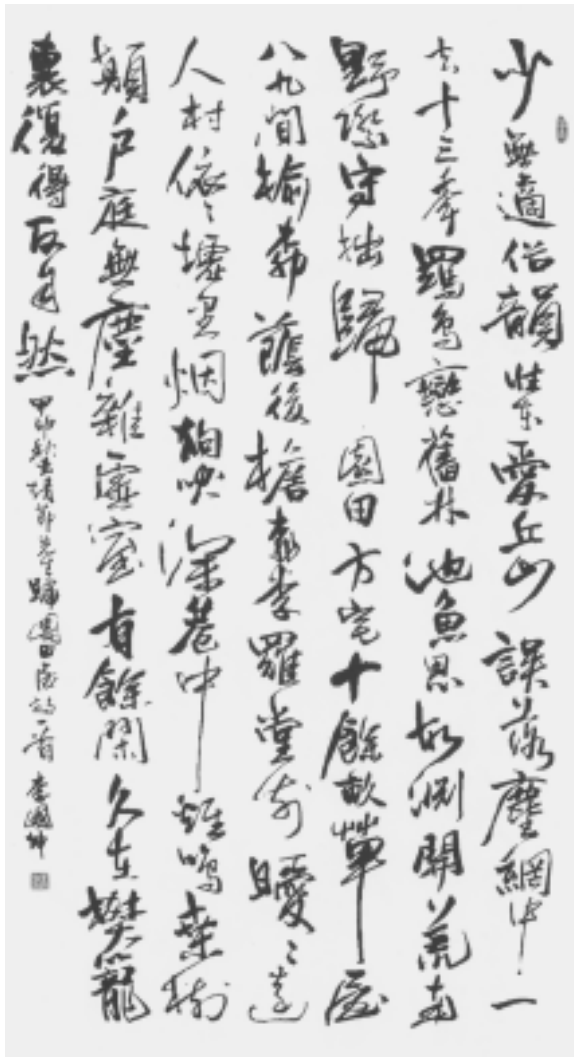 少無適俗韻性本愛丘山誤落塵網中一
去十三秊羈鳥戀舊林池魚思故淵開荒南
野際守拙歸園田方宅十餘畝草屋
八九間榆柳蔭後檐桃李羅堂前曖〻遠
人村依〻墟里烟狗吠深巷中雞鳴桑樹
顛戶庭無塵雜虛室有餘閑久在樊籠
裏復得返自然 甲午秋書靖節先生歸園田居詩一首 李